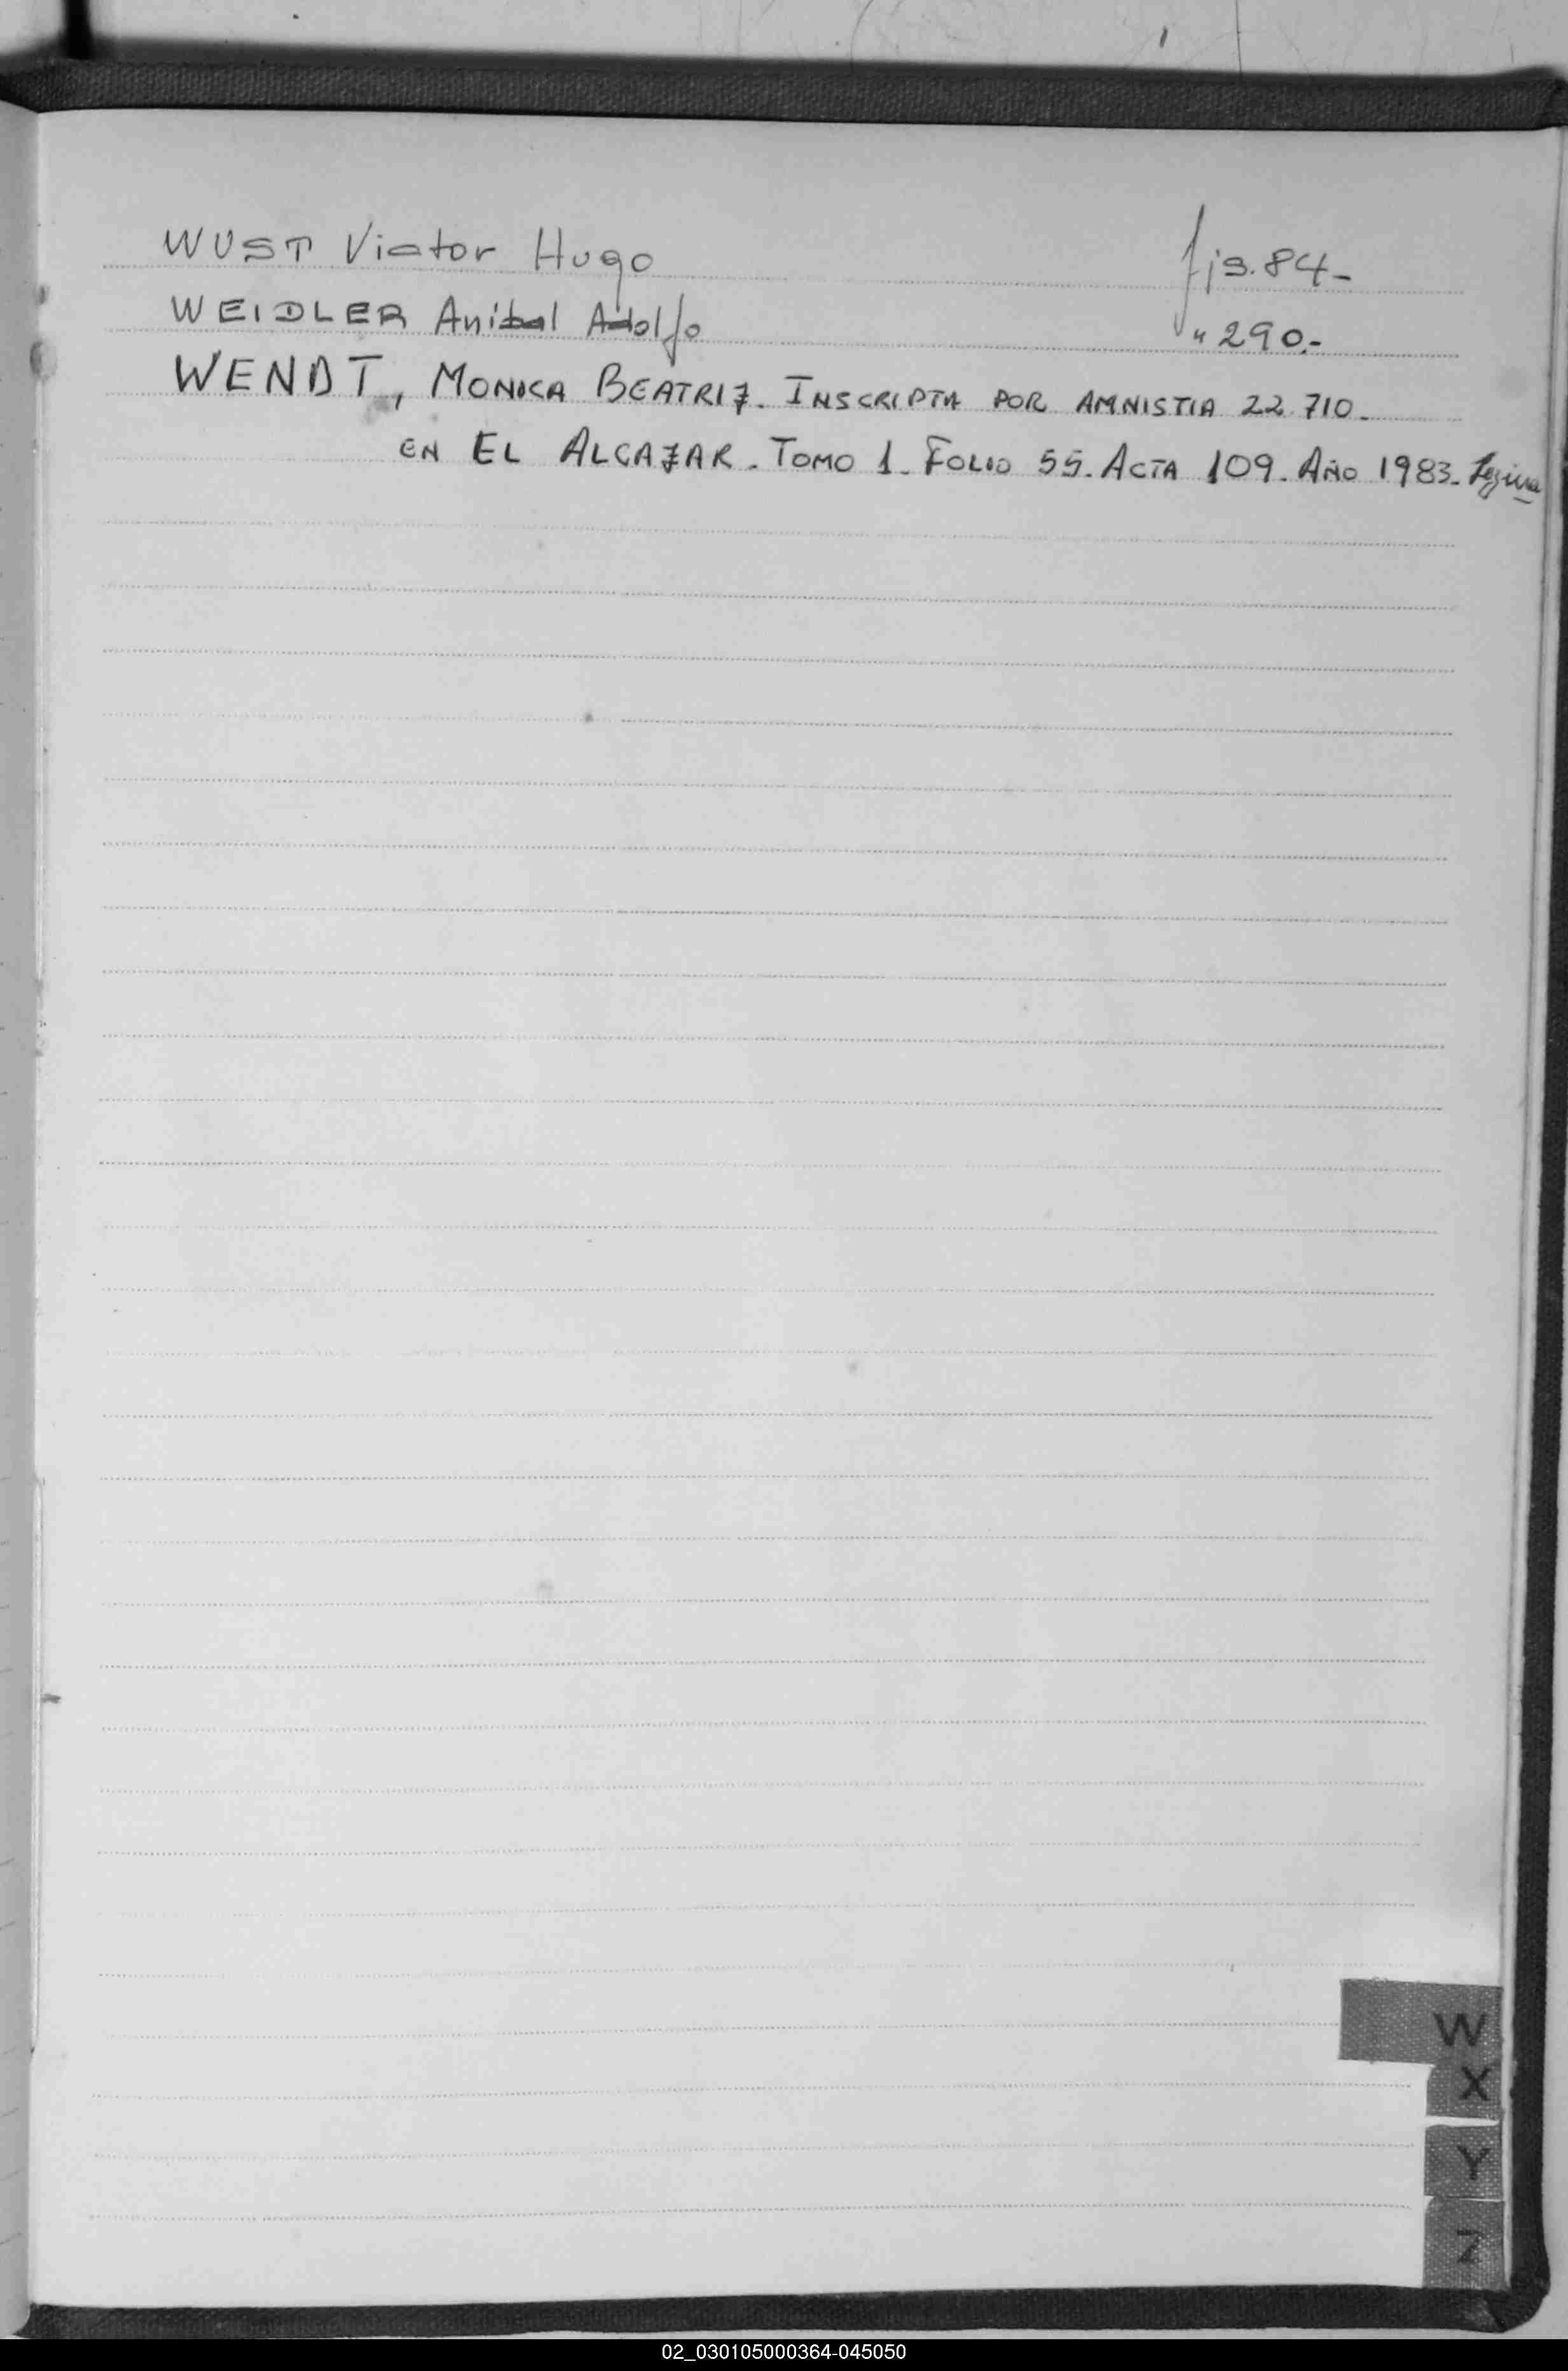 WUST Victor Hugo fjs. 84-
WEIDLER Anibal Adolfo " 290.-
WENDT, MONICA BEATRIZ. INSCRIPTA POR AMNISTIA 22.710-
EN EL ALCAZAR. TOMO 1- FOLIO 55. ACTA 109. AÑO 1983-
W
X
Y
Z
02_030105000364-045050